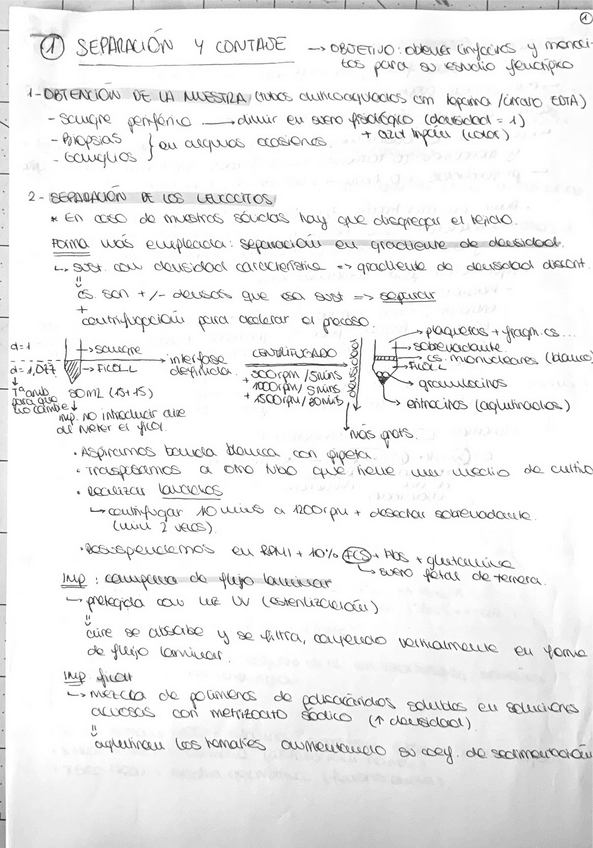 1
① SEPARACIÓN Y CONTAJE → OBJETIVO: obtener linfocitos y monoci-
tos para su estudio fenotípico
1- OBTENCIÓN DE LA MUESTRA (tubos anticoagulados con heparina / citrato EDTA)
- Sangre periférica → diluir en suero fisiológico (densidad = 1)
+ azul tripán (color)
- Biopsias
- Ganglios } en algunas ocasiones.
2- SEPARACIÓN DE LOS LEUCOCITOS
* En caso de muestras sólidas hay que disgregar el tejido.
Forma más empleada: separación en gradiente de densidad.
↳ sust. con densidad característica => gradiente de densidad discont.
cs. son +/- densas que esa sust => separar
+
centrifugación para acelerar el proceso.
d=1
d=1,077
Tª amb para que no cambie
sangre
FICOLL
30 ml (15+15)
imp. no introducir aire al meter el ficol.
interfase definida
CENTRIFUGADO
500rpm / 5 mins
+ 1000rpm / 5 mins
+ 1500rpm / 30 mins
densidad
más grats.
plaquetas + fragm. cs...
sobrenadante
cs. mononucleares (blanco)
FICOLL
granulocitos
eritrocitos (aglutinados)
· Aspiramos banda blanca con pipeta.
· Transportamos a otro tubo que tiene un medio de cultivo
· Realizar lavados
↳ centrifugar 10 mins a 1200rpm + desechar sobrenadante.
(mini 2 veces).
· Resuspendemos en RPMI + 10% FCS + Abs + glutamina
↳ suero fetal de ternera.
IMP: campana de flujo laminar
↳ protegida con luz UV (esterilización)
aire se absorbe y se filtra, cayendo verticalmente en forma
de flujo laminar.
IMP ficoll
↳ mezcla de polímeros de polisacáridos solubles en soluciones
acuosas con metrizoato sódico (↑ densidad)
aglutinan los hematíes aumentando su coef. de sedimentación